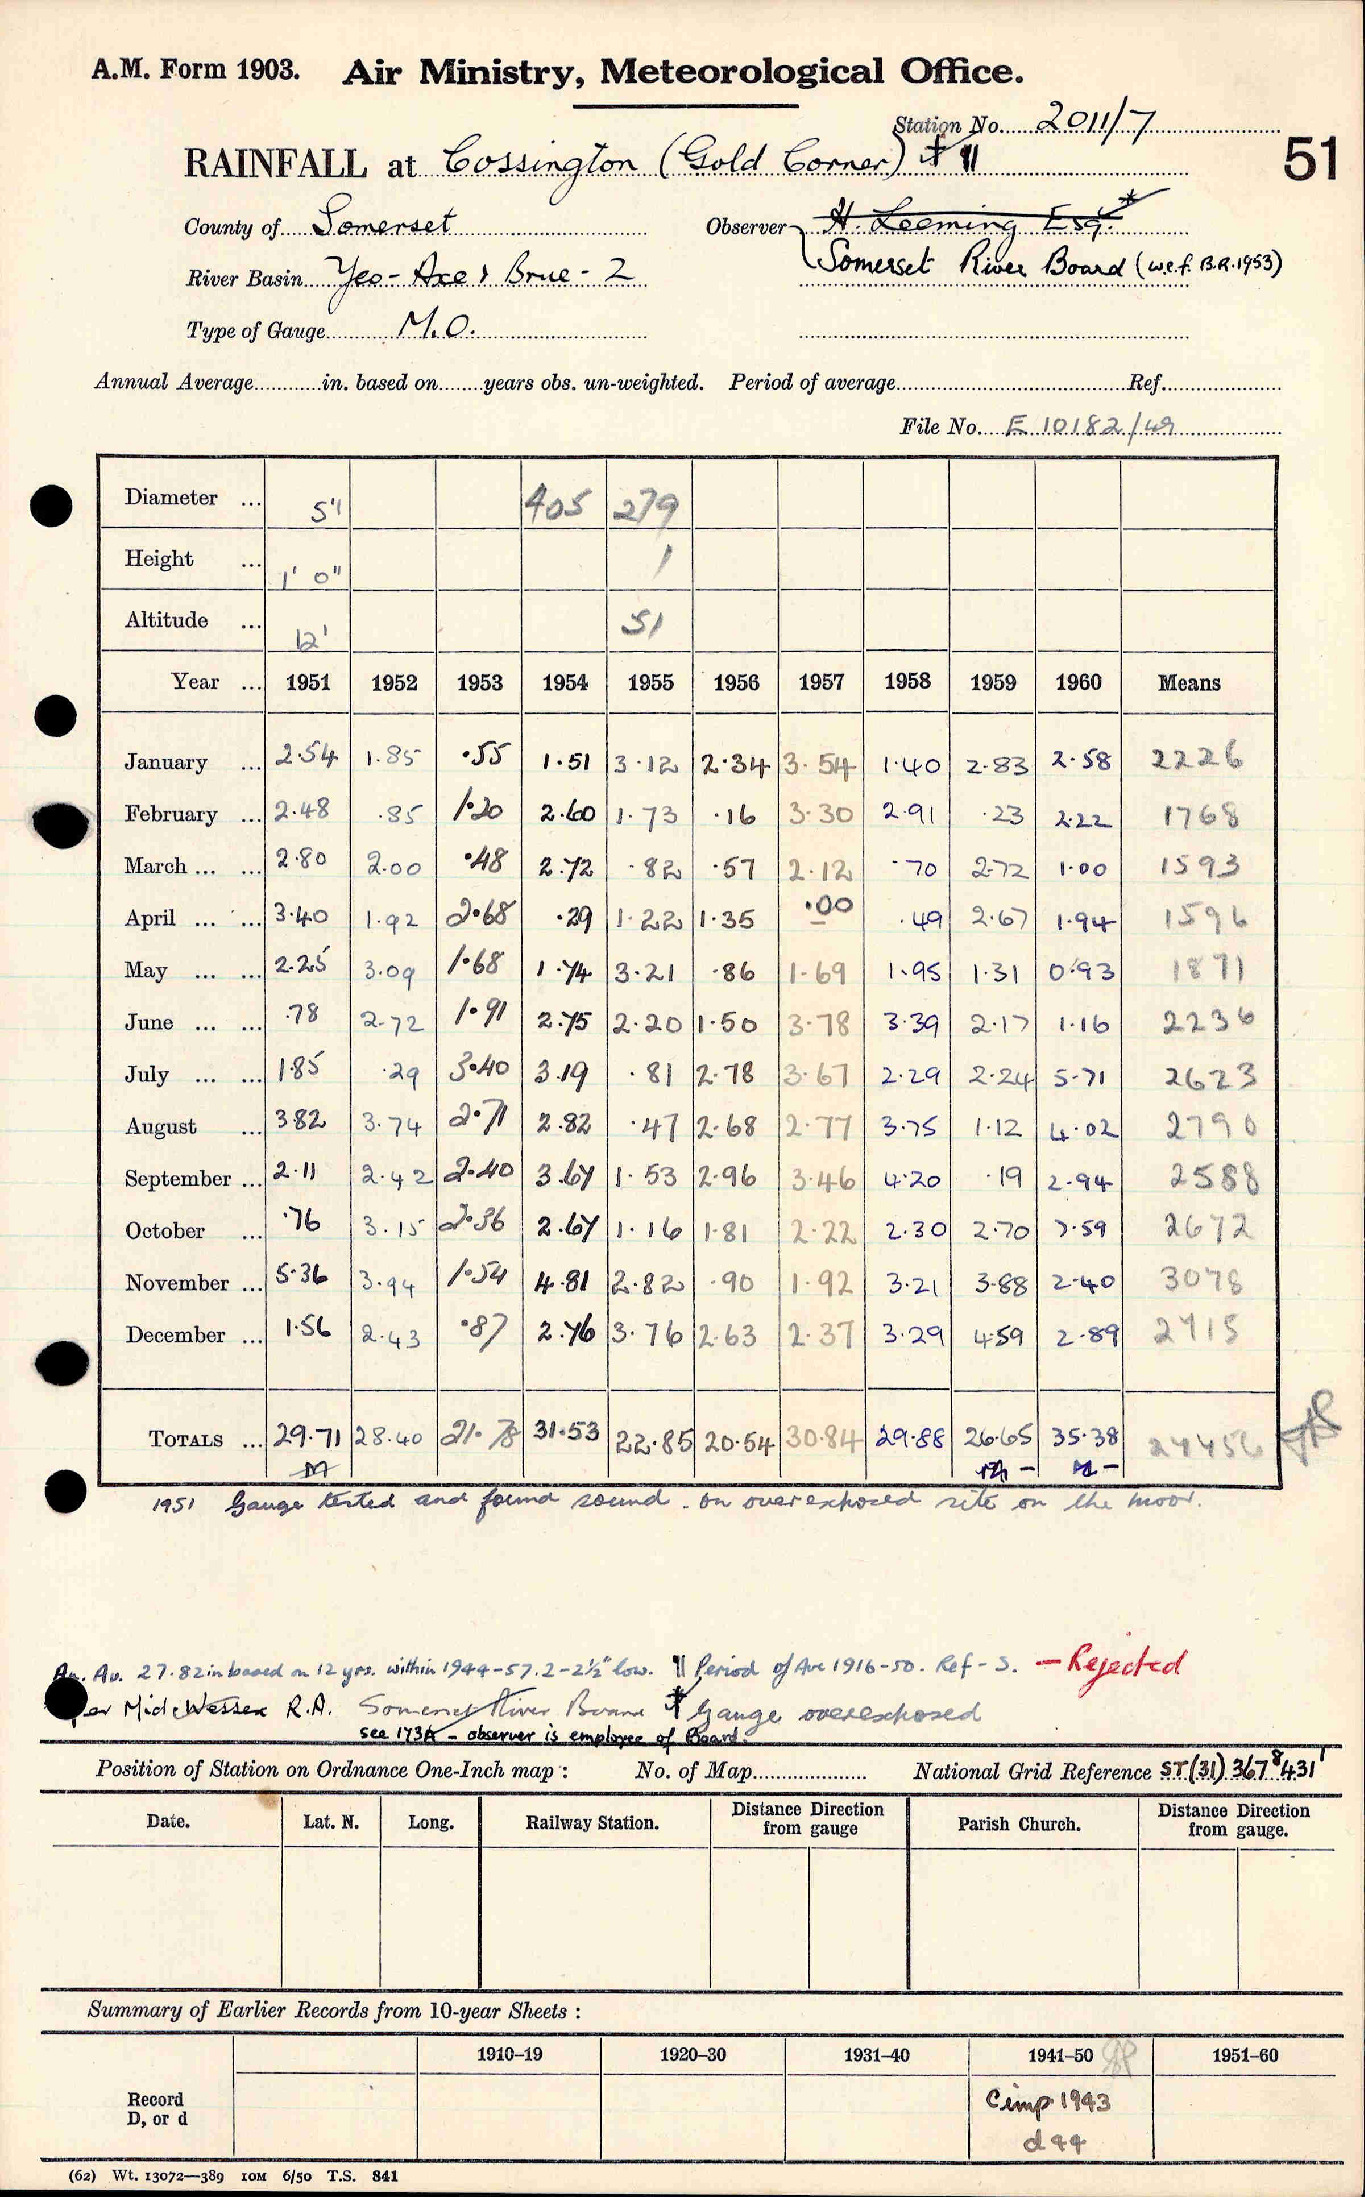 A.M. Form 1903. Air Ministry, Meteorological Office.
Station No. 2011/7
RAINFALL at Cossington (Gold Corner) ‡ ¶
51
County of Somerset Observer H. Leeming Esq. *
Somerset River Board (w.e.f. B.R. 1953)
River Basin Yeo-Axe & Brue - 2
Type of Gauge M.O.
Annual Average in. based on years obs. un-weighted. Period of average Ref.
File No. E 10182/49
Diameter ... 5" 405 279
Height ... 1' 0" 1
Altitude ... 12' 51
Year ... 1951 1952 1953 1954 1955 1956 1957 1958 1959 1960 Means
January ... 2.54 1.85 .55 1.51 3.12 2.34 3.54 1.40 2.83 2.58 2226
February ... 2.48 .85 1.20 2.60 1.73 .16 3.30 2.91 .23 2.22 1768
March ... ... 2.80 2.00 .48 2.72 .82 .57 2.12 .70 2.72 1.00 1593
April ... ... 3.40 1.92 2.68 .29 1.22 1.35 .00 .49 2.67 1.94 1596
May ... ... 2.25 3.09 1.68 1.74 3.21 .86 1.69 1.95 1.31 0.93 1871
June ... ... .78 2.72 1.91 2.75 2.20 1.50 3.78 3.39 2.17 1.16 2236
July ... ... 1.85 .29 3.40 3.19 .81 2.78 3.67 2.29 2.24 5.71 2623
August ... 3.82 3.74 2.71 2.82 .47 2.68 2.77 3.75 1.12 4.02 2790
September ... 2.11 2.42 2.40 3.67 1.53 2.96 3.46 4.20 .19 2.94 2588
October ... .76 3.15 2.36 2.67 1.16 1.81 2.22 2.30 2.70 7.59 2672
November ... 5.36 3.94 1.54 4.81 2.82 .90 1.92 3.21 3.88 2.40 3078
December ... 1.56 2.43 .87 2.76 3.76 2.63 2.37 3.29 4.59 2.89 2715
TOTALS ... 29.71 28.40 21.78 31.53 22.85 20.54 30.84 29.88 26.65 35.38 27756
1951 Gauge tested and found sound - on overexposed site on the moor.
An. Av. 27.82 in based on 12 yrs. within 1944-57. 2-2½" low. ¶ Period of Ave 1916-50. Ref - S. - Rejected
Mid Wessex R.A. Somerset River Board ‡ Gauge overexposed
see 173A - observer is employee of Board.
Position of Station on Ordnance One-Inch map : No. of Map National Grid Reference ST(31) 367⁸ 431¹
Date. Lat. N. Long. Railway Station. Distance Direction from gauge Parish Church. Distance Direction from gauge.
Summary of Earlier Records from 10-year Sheets :
1910–19 1920–30 1931–40 1941–50 1951–60
Record
D, or d
Cimp 1943
d 44
(62) Wt. 13072—389 10M 6/50 T.S. 841